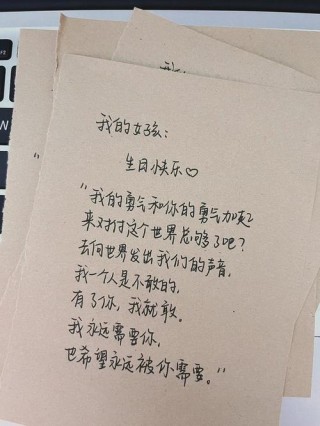 我的女孩：
生日快乐♡
“我的勇气和你的勇气加起
来对付这个世界总够了吧？
去向世界发出我们的声音，
我一个人是不敢的，
有了你，我就敢。
我永远需要你，
也希望永远被你需要。”